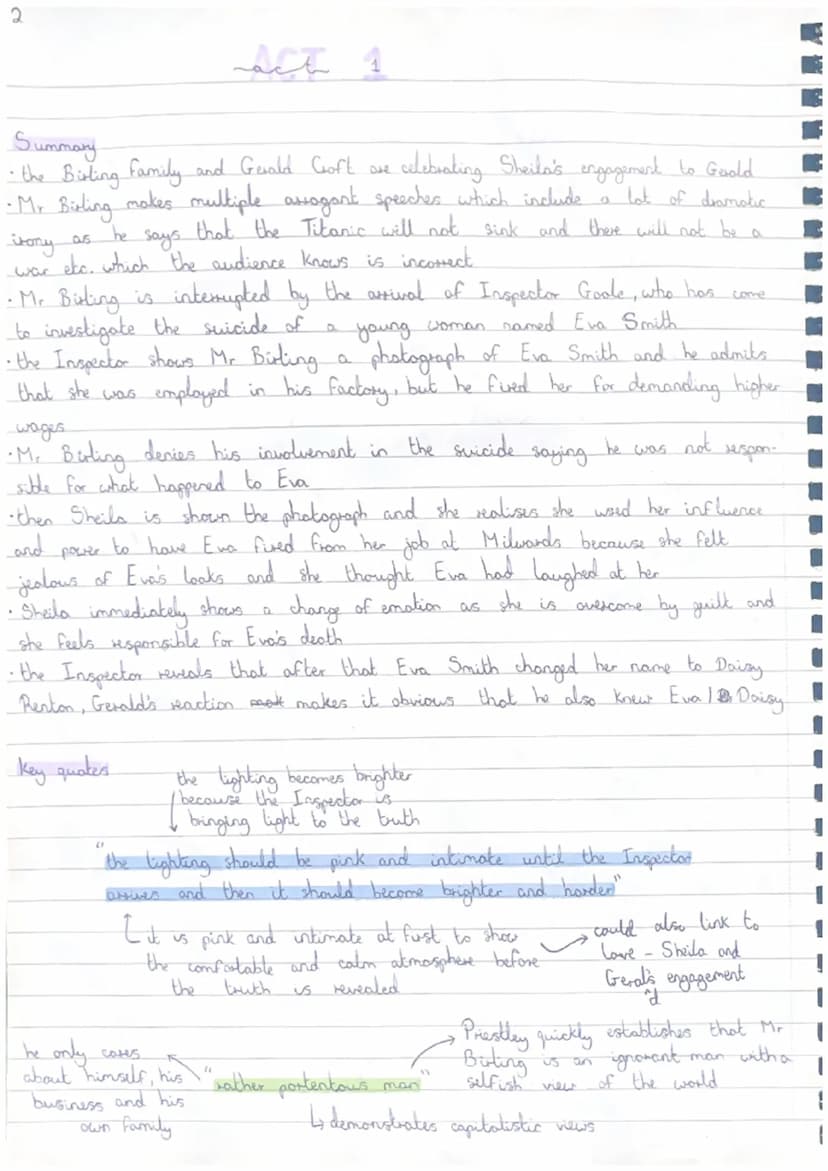 2
act 1
Summary
· the Birling family and Gerald Croft are celebrating Sheila's engagement to Gerald
· Mr Birling makes multiple arrogant speeches which include a lot of dramatic
irony as he says that the Titanic will not sink and there will not be a
war etc. which the audience knows is incorrect
· Mr Birling is interrupted by the arrival of Inspector Goole, who has come
to investigate the suicide of a young woman named Eva Smith
· the Inspector shows Mr Birling a photograph of Eva Smith and he admits
that she was employed in his factory, but he fired her for demanding higher
wages
· Mr Birling denies his involvement in the suicide saying he was not respon-
sible for what happened to Eva
· then Sheila is shown the photograph and she realises she used her influence
and power to have Eva fired from her job at Milwards because she felt
jealous of Eva's looks and she thought Eva had laughed at her
· Sheila immediately shows a change of emotion as she is overcome by guilt and
she feels responsible for Eva's death
· the Inspector reveals that after that Eva Smith changed her name to Daisy
Renton, Gerald's reaction makes it obvious that he also knew Eva / Daisy
key quotes
the lighting becomes brighter
because the Inspector is
bringing light to the truth
"the lighting should be pink and intimate until the Inspector
arrives and then it should become brighter and harder"
it is pink and intimate at first, to show
the comfortable and calm atmosphere before
the truth is revealed
could also link to
love - Sheila and
Gerald's engagement
he only cares
about himself, his
business and his
own family
"rather portentous man"
Priestley quickly establishes that Mr
Birling is an ignorant man with a
selfish view of the world
↳ demonstrates capitalistic views